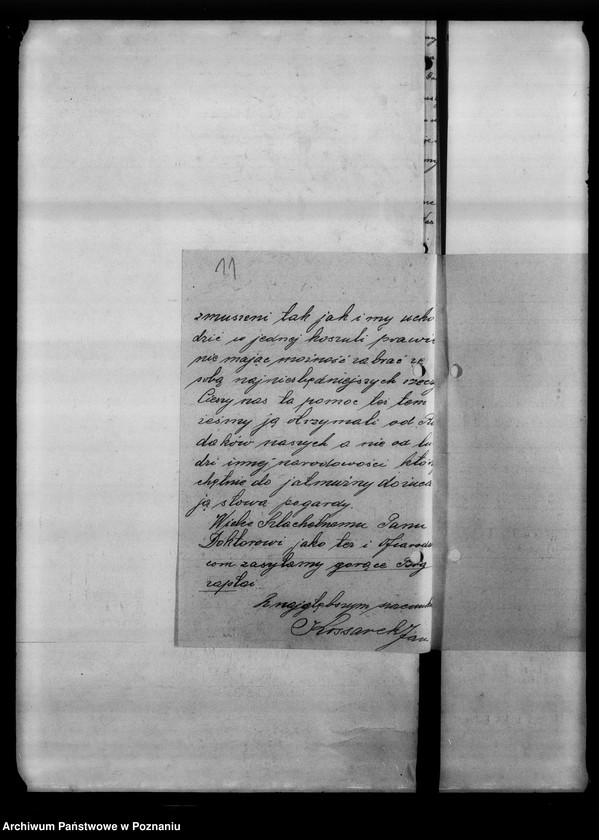 11
zmuszeni tak jak i my ucho
dzić w jednej koszuli prawi
nie mając możność zabrać ze
sobą najniezbędniejszych rzecz
Cieszy nas ta pomoc też tem
żeśmy ją otrzymali od Ro
daków naszych a nie od lu
dzi innej narodowości któr
chętnie do jałmużny dorzuca
ją słowa pogardy.
Wielce Szlachetnemu Panu
Doktorowi jako też i Ofiarodaw
com zasyłamy gorące Bóg
zapłać
Z najgłębszym szacunk
Kossarek Jan
Archiwum Państwowe w Poznaniu